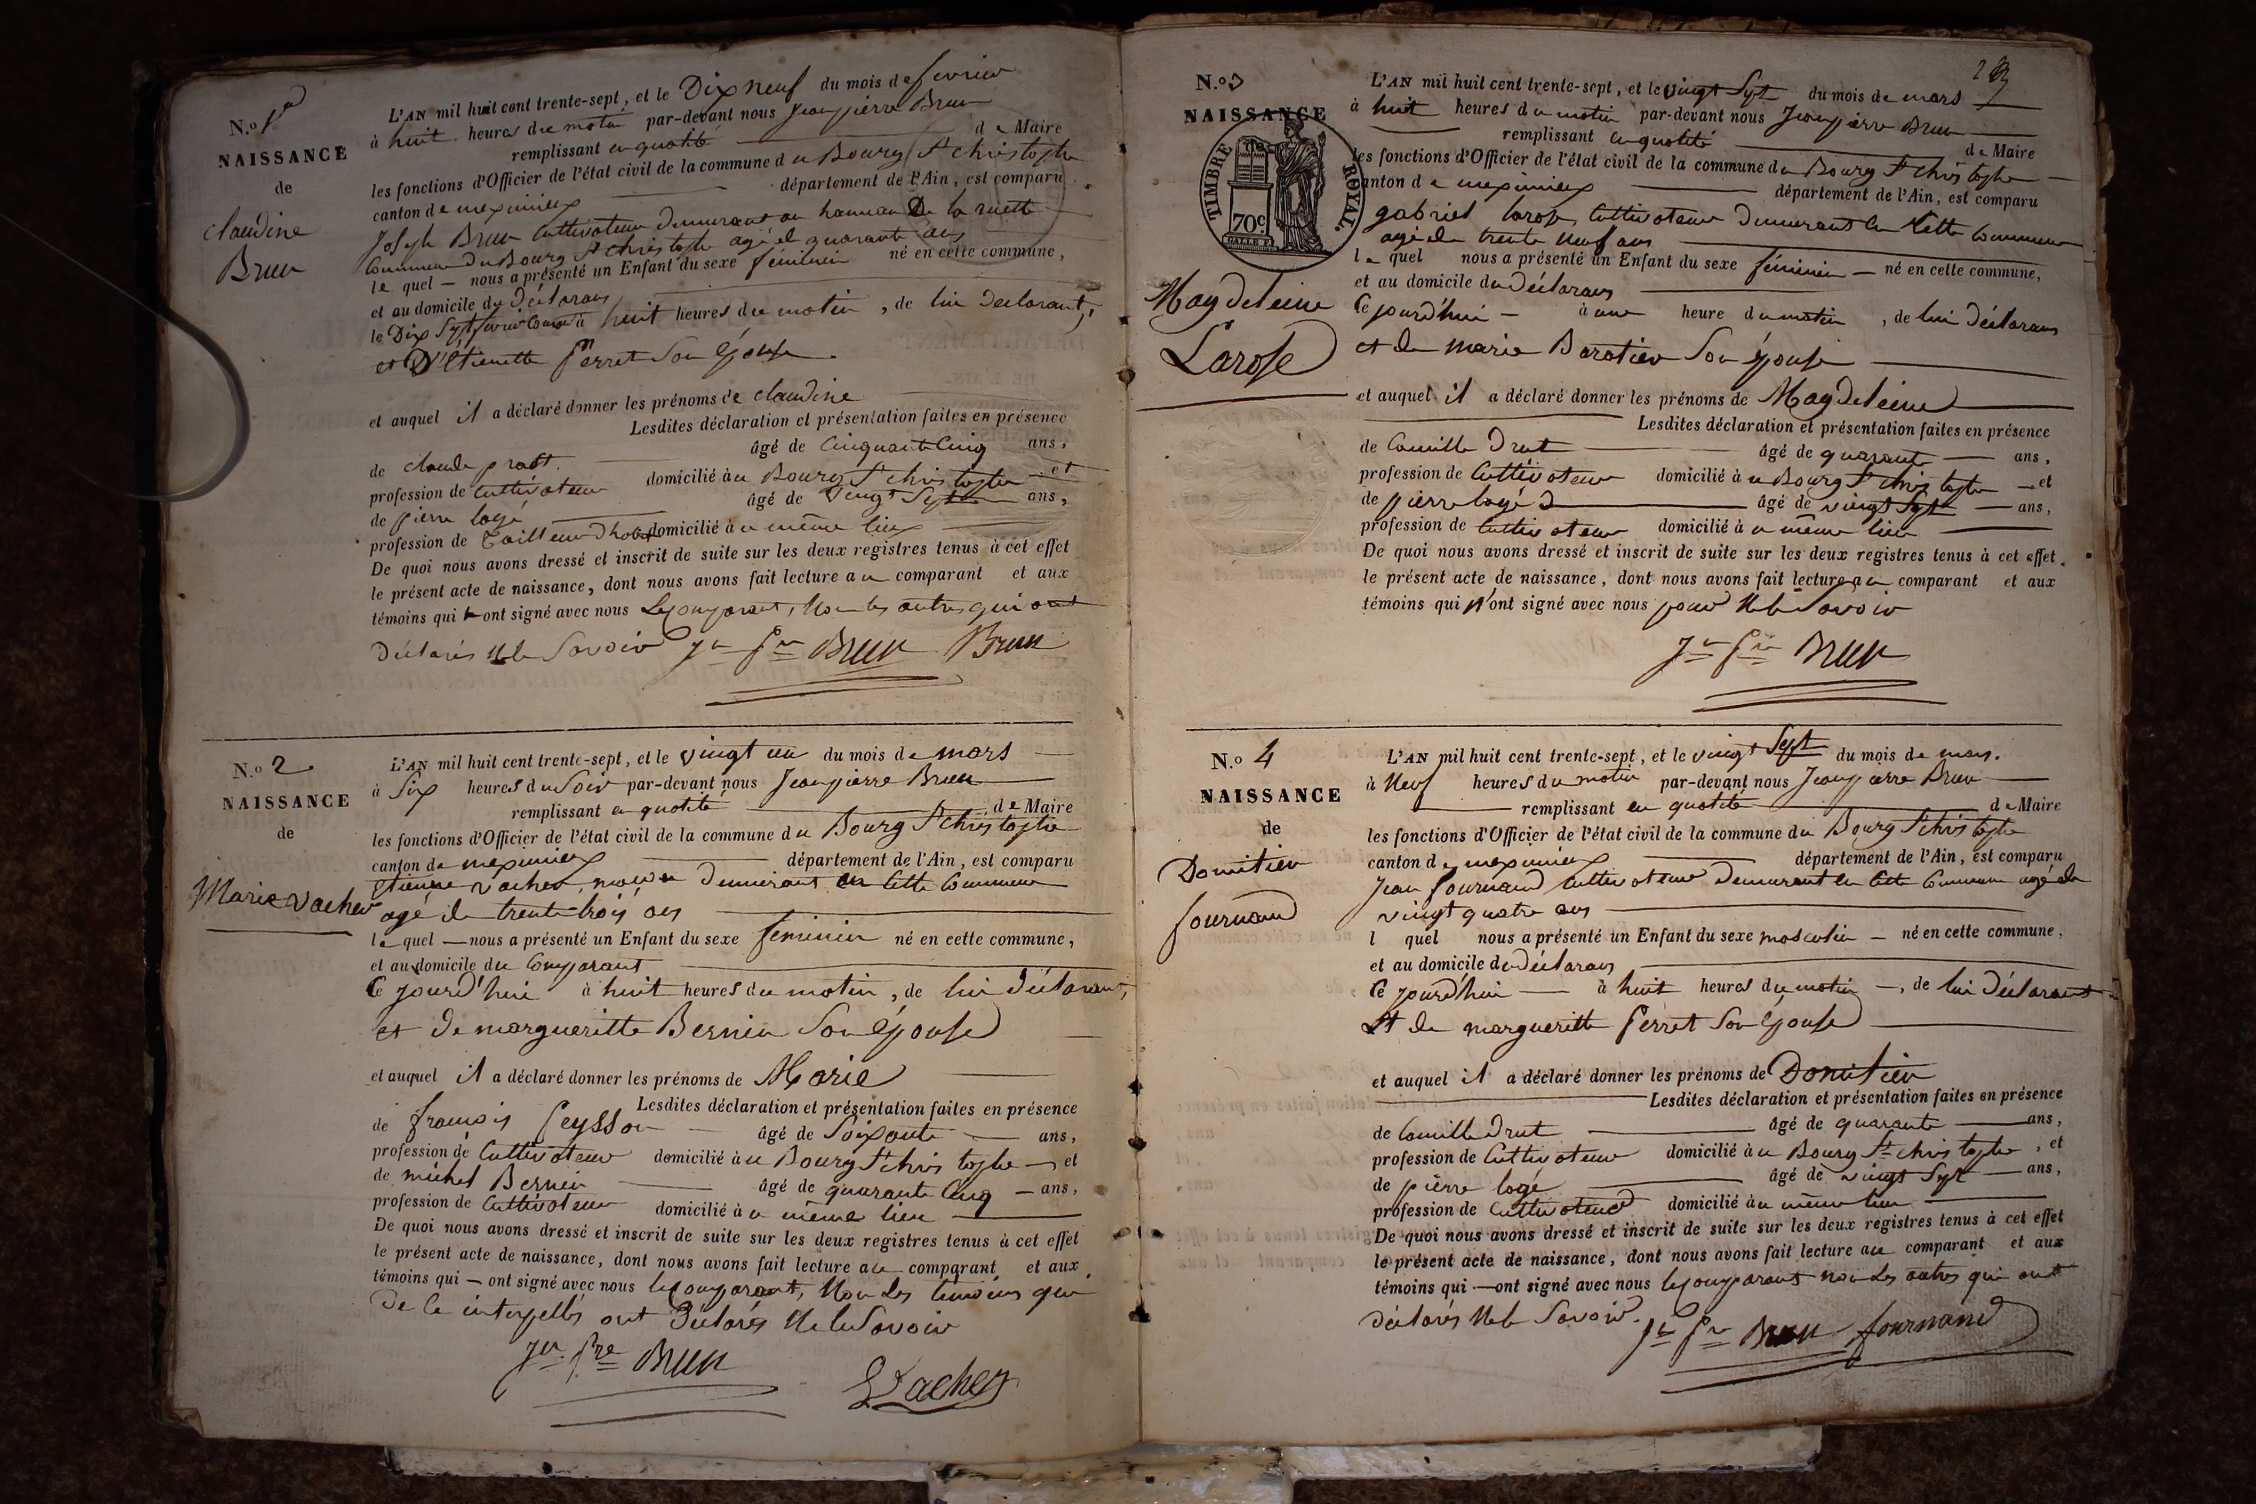 N.o 1er
NAISSANCE
de
claudine
Brun
L'AN mil huit cent trente-sept, et le Dix neuf du mois de fevrier
à huit heures du matin par-devant nous Jean pierre Brun
remplissant en qualité de Maire
les fonctions d'Officier de l'état civil de la commune du Bourg St christophe
canton de meximieux département de l'Ain, est comparu
Joseph Brun Cultivateur demeurant au hameau De la ruette
Commune du Bourg St christophe agé de quarante ans
le quel — nous a présenté un Enfant du sexe féminin né en cette commune,
et au domicile du déclarant
le Dix Sept fevrier Courant à huit heures du matin, de lui declarant,
et D'étiennette perret Son épouse
et auquel il a déclaré donner les prénoms de claudine
Lesdites déclaration et présentation faites en présence
de claude prost âgé de Cinquante Cinq ans,
profession de Cultivateur domicilié au Bourg St christophe et
de pierre logé âgé de Vingt Sept ans,
profession de Tailleur d'habit domicilié au même lieu
De quoi nous avons dressé et inscrit de suite sur les deux registres tenus à cet effet
le présent acte de naissance, dont nous avons fait lecture au comparant et aux
témoins qui ont signé avec nous le comparant, Non les autres qui ont
Déclarés Ne le Savoir Jn Pre Brun Brun
N.o 2
NAISSANCE
de
Marie vacher
L'AN mil huit cent trente-sept, et le vingt un du mois de mars
à Six heures du Soir par-devant nous Jean pierre Brun
remplissant en qualité de Maire
les fonctions d'Officier de l'état civil de la commune du Bourg St christophe
canton de meximieux département de l'Ain, est comparu
étienne vacher, maçon demeurant en Cette Commune
agé de trente trois ans
le quel — nous a présenté un Enfant du sexe féminin né en cette commune,
et au domicile du Comparant
Ce jourd'hui à huit heures du matin, de lui déclarant,
et de margueritte Bernin Son épouse
et auquel il a déclaré donner les prénoms de Marie
Lesdites déclaration et présentation faites en présence
de françois peysson âgé de Soixante ans,
profession de Cultivateur domicilié au Bourg St christophe et
de michel Bernin âgé de quarante Cinq ans,
profession de Cultivateur domicilié au même lieu
De quoi nous avons dressé et inscrit de suite sur les deux registres tenus à cet effet
le présent acte de naissance, dont nous avons fait lecture au comparant et aux
témoins qui — ont signé avec nous le comparant, Non les témoins qui
De Ce interpellés ont Déclarés Ne le Savoir
Jn Pre Brun
E Vacher
N.o 3
NAISSANCE
de
TIMBRE ROYAL
70c
Magdeleine
Larose
L'AN mil huit cent trente-sept, et le vingt Sept du mois de mars
à huit heures du matin par-devant nous Jean pierre Brun
remplissant en qualité de Maire
les fonctions d'Officier de l'état civil de la commune du Bourg St christophe
canton de meximieux département de l'Ain, est comparu
gabriel larose, Cultivateur demeurant en Cette Commune
agé de trente neuf ans
le quel nous a présenté un Enfant du sexe féminin — né en cette commune,
et au domicile du Déclarant
Ce jourd'hui — à une heure du matin, de lui Déclarant
et de marie Baratier Son épouse
et auquel il a déclaré donner les prénoms de Magdeleine
Lesdites déclaration et présentation faites en présence
de Camille Drut âgé de quarante ans,
profession de Cultivateur domicilié au Bourg St christophe et
de pierre logé âgé de vingt Sept ans,
profession de Cultivateur domicilié au même lieu
De quoi nous avons dressé et inscrit de suite sur les deux registres tenus à cet effet
le présent acte de naissance, dont nous avons fait lecture au comparant et aux
témoins qui n'ont signé avec nous pour Ne le Savoir
Jn Pre Brun
N.o 4
NAISSANCE
de
Domitien
fournand
L'AN mil huit cent trente-sept, et le vingt Sept du mois de mars.
à Neuf heures du matin par-devant nous Jean pierre Brun
remplissant en qualité de Maire
les fonctions d'Officier de l'état civil de la commune du Bourg St christophe
canton de meximieux département de l'Ain, est comparu
Jean fournand Cultivateur demeurant en Cette Commune agé de
vingt quatre ans
l quel nous a présenté un Enfant du sexe masculin — né en cette commune,
et au domicile du déclarant
Ce jourd'hui — à huit heures du matin —, de lui Déclarant
Et de margueritte perret Son épouse
et auquel il a déclaré donner les prénoms de Domitien
Lesdites déclaration et présentation faites en présence
de Camille Drut âgé de quarante ans,
profession de Cultivateur domicilié au Bourg St christophe, et
de pierre logé âgé de vingt Sept ans,
profession de Cultivateur domicilié au même lieu
De quoi nous avons dressé et inscrit de suite sur les deux registres tenus à cet effet
le présent acte de naissance, dont nous avons fait lecture au comparant et aux
témoins qui — ont signé avec nous le comparant non les autres qui ont
déclarés Ne le Savoir. Jn Pre Brun fournand